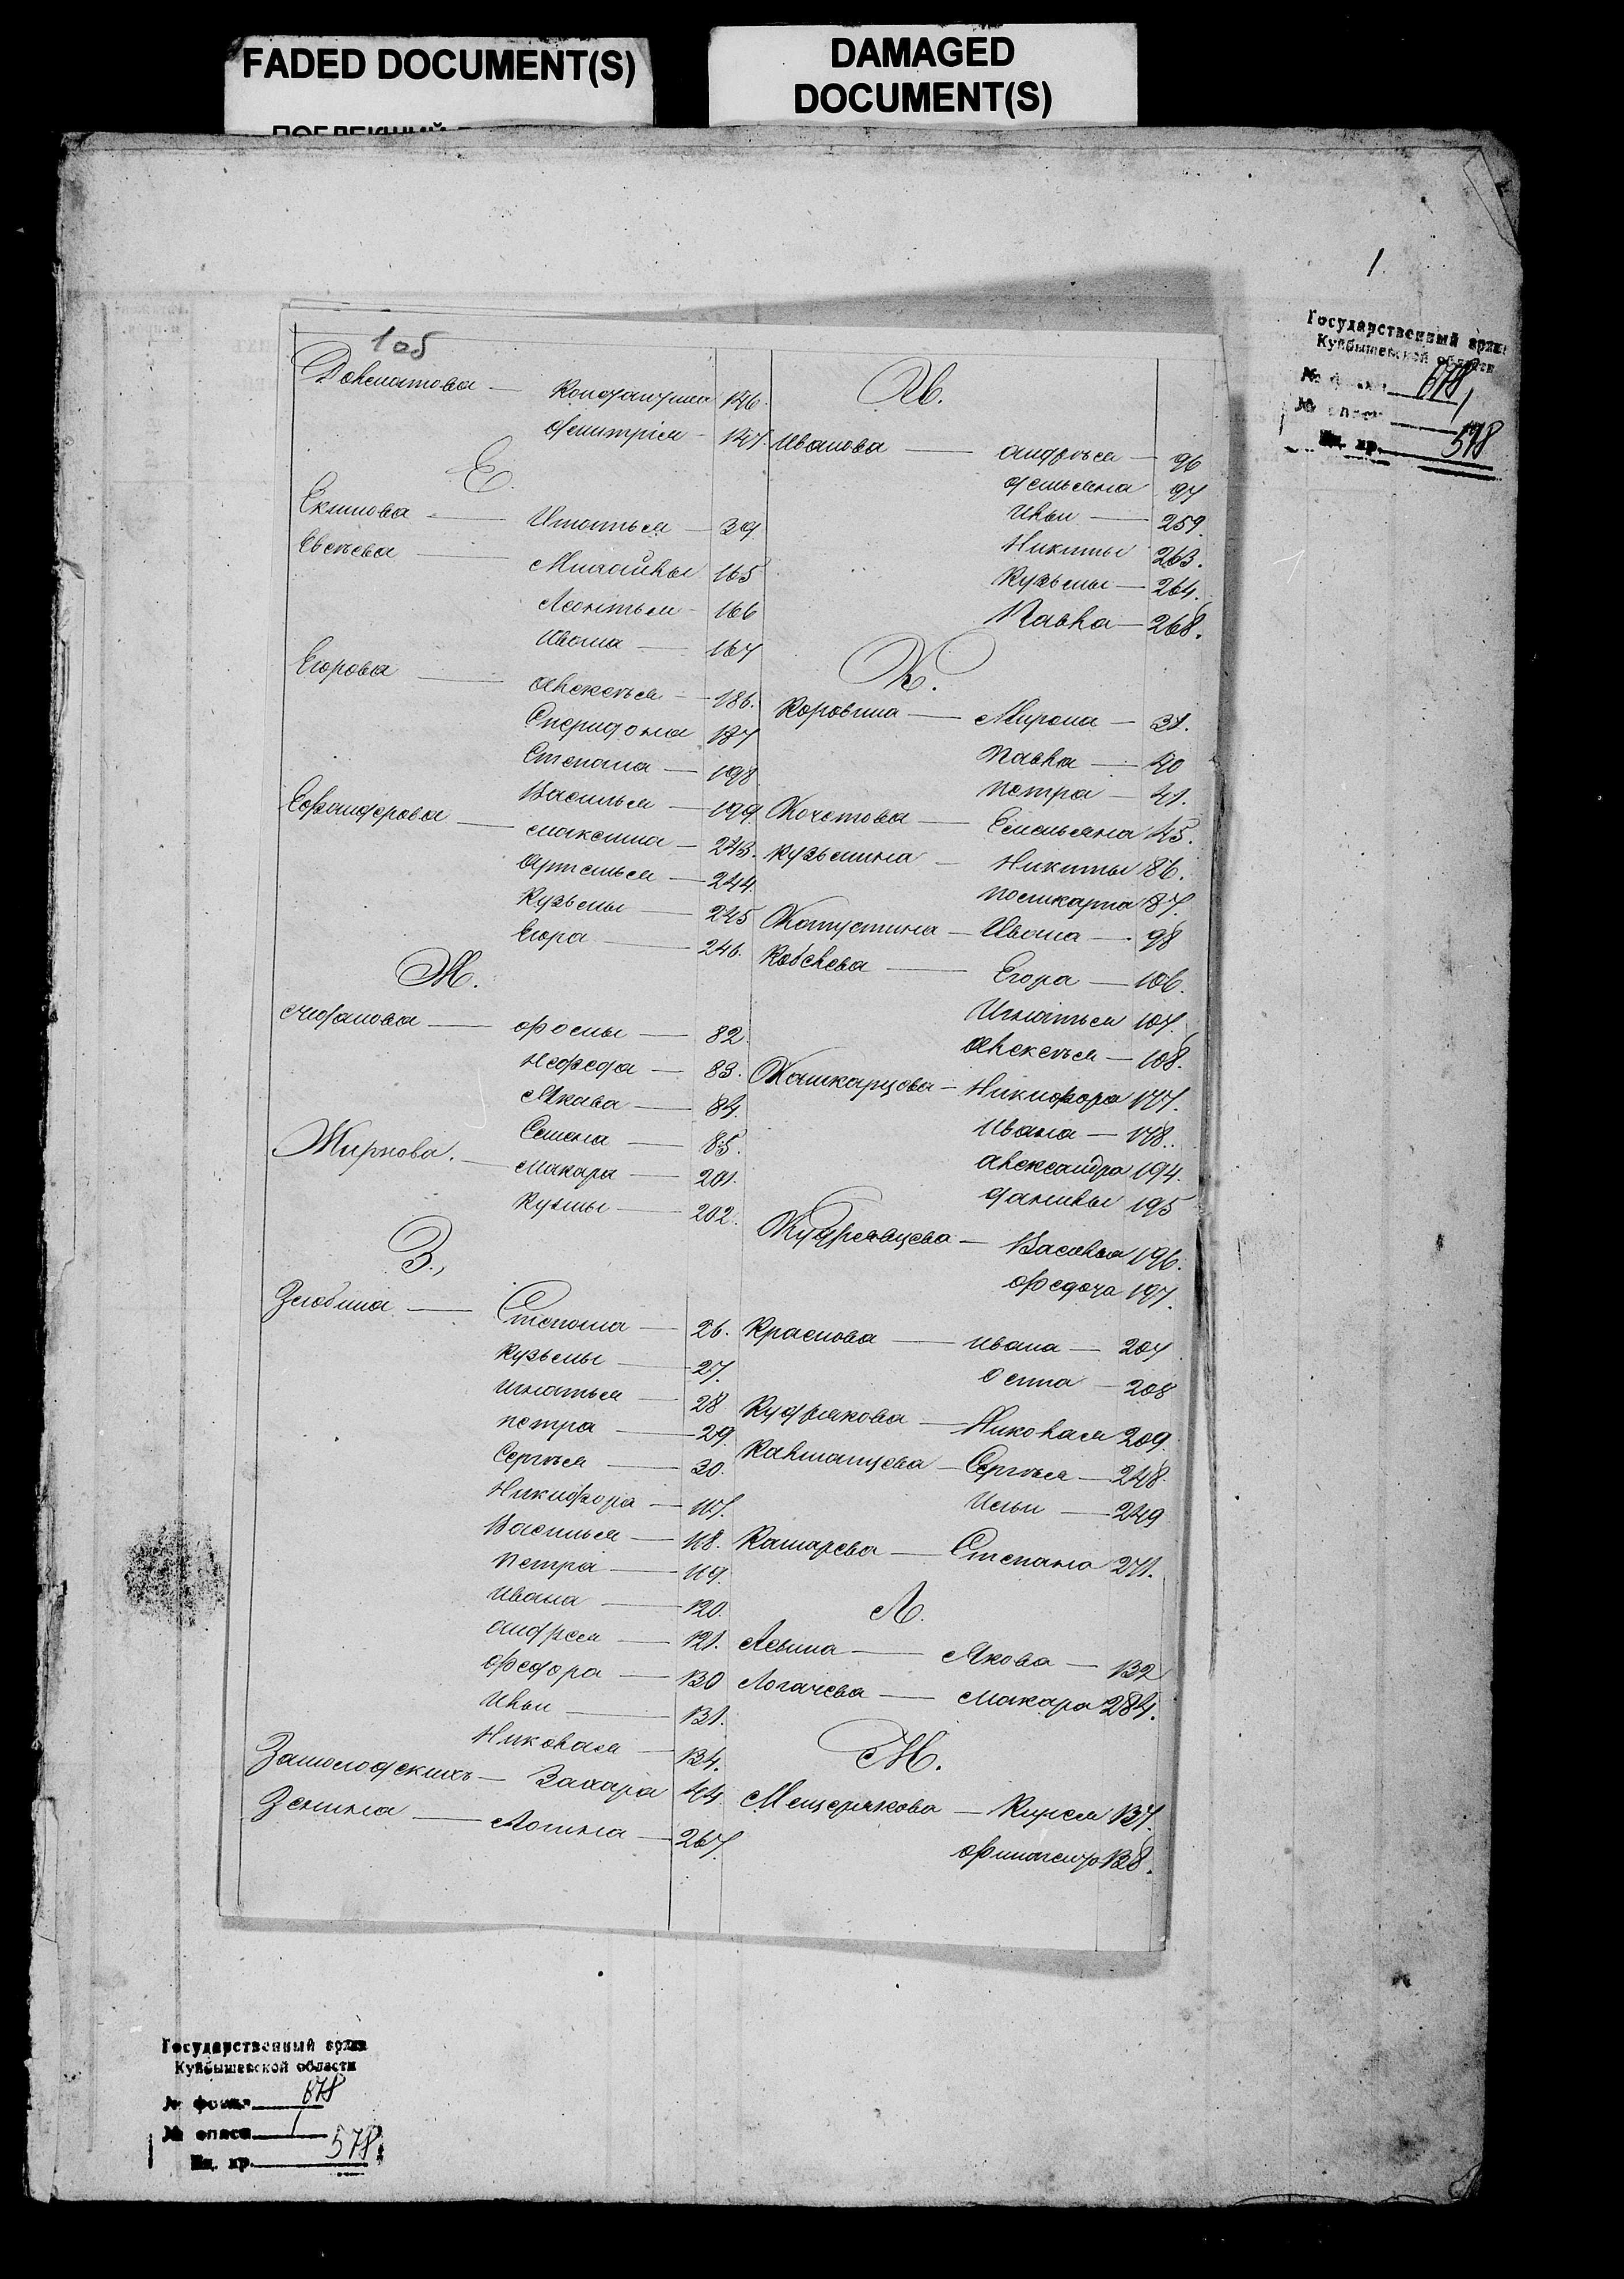 FADED DOCUMENT(S)
DAMAGED
DOCUMENT(S)
1
Государственный архив
Куйбышевской области
№ фонда 678
№ описи 1
Ед. хр. 578
1 об
Довлатова — Константина 146.
Дмитрія — 147
Е.
Екимова — Игнатья — 39
Евсѣева — Михайлы 165
Леонтья — 166
Ивана — 167
Егорова — Алексѣя — 186.
Спиридона 187
Степана — 198
Василья — 199
Елфандерова — Максима — 243.
Артемья — 244.
Кузьмы — 245
Егора — 246.
Ж.
Жданова — Фомы — 82.
Нефеда — 83.
Якова — 84.
Семена — 85.
Жирнова. — Макара — 201.
Кузмы — 202.
З.
Зюбина — Степана — 26.
Кузьмы — 27.
Игнатья — 28
Петра — 29.
Сергѣя — 30.
Никифора — 117.
Василья — 118.
Петра — 119.
Ивана — 120.
Андрея — 121.
Федора — 130
Ильи — 131.
Николая — 134.
Захара 44
Зенина — Логина — 267.
И.
Иванова — Андрѣя — 96
Демьяна 97
Ильи — 259.
Никиты 263.
Кузьмы — 264.
Павла — 268.
К.
Коровина — Мирона — 31.
Павла — 40
Петра — 41.
Кочетова — Емельяна 45.
Кузьмина — Никиты 86.
Поликарпа 87.
Капустина — Ивана — 98
Кобелева — Егора — 106.
Игнатья 107.
Алексѣя — 108.
Кашкарцова — Никифора 177.
Ивана — 178.
Александра 194.
Данилы 195
Кудрявцева — Василья 196.
Федора 197.
Краснова — Ивана — 207
Осипа — 208
Кудрякова — Николая 209.
Калманцева — Сергѣя — 248.
Ильи — 249
Кашарева — Степана 271.
Л.
Левина — Якова — 132
Логачева — Макара 284.
М.
Мещерякова — Кирея 137.
138.
Государственный архив
Куйбышевской области
№ фонда 678
№ описи 1
Ед. хр. 578